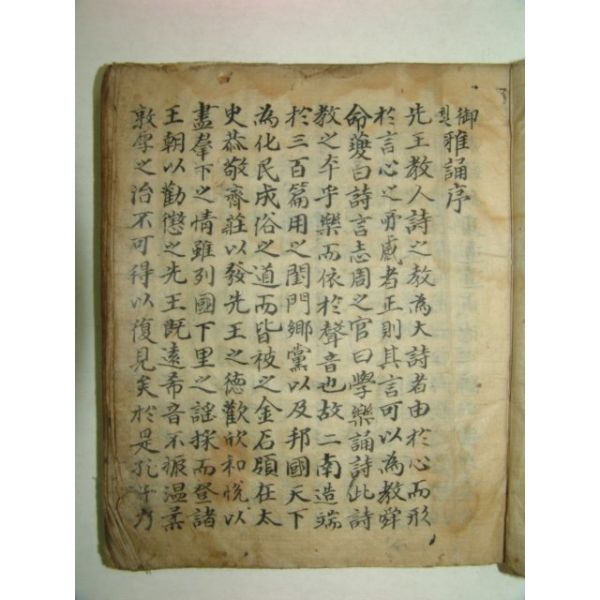 御製雅誦序
先王教人詩之教為大詩者由於心而形
於言心之所感者正則其言可以為教舜
命夔曰詩言志周之官曰學樂誦詩此詩
教之本乎樂而依於聲音也故二南造端
於三百篇用之閨門鄉黨以及邦國天下
為化民成俗之道而皆被之金石頌在太
史恭敬齊莊以發先王之德歡欣和悅以
盡羣下之情雖列國下里之謠採而登諸
王朝以勸懲之先王既遠希音不振溫柔
敦厚之治不可得以復見矣於是